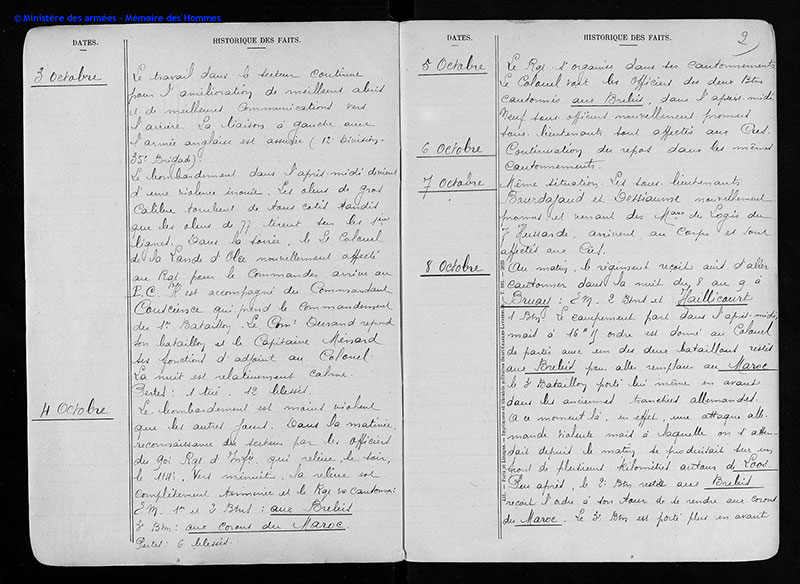 © Ministère des armées - Mémoire des Hommes
DATES.
HISTORIQUE DES FAITS.
3 Octobre
Le travail dans le secteur continue
pour l'amélioration de meilleurs abris
et de meilleurs communications vers
l'arrière. La liaison à gauche avec
l'armée anglaise est assurée (12e Division-
35e Brigade)
Le bombardement dans l'après-midi devient
d'une violence inouïe. Les obus de gros
calibre tombent de tous cotés tandis
que les obus de 77 tirent sur les 1ères
lignes. Dans la soirée, le Lt Colonel
de la Lande d'Olce nouvellement affecté
au Rgt pour le Commander arrive au
P.C. Il est accompagné du Commandant
Couscience qui prend le Commandement
du 1er Bataillon. Le Comt Durand reprend
son bataillon et le Capitaine Ménard
ses fonctions d'adjoint au Colonel
La nuit est relativement calme.
Pertes: 1 tué. 12 blessés.
4 Octobre
Le bombardement est moins violent
que les autres jours. Dans la matinée,
reconnaissance du secteur par les officiers
du 90e Rgt d'Infie qui relève, le soir,
le 114e. Vers minuit, la relève est
complètement terminée et le Rgt va cantonner:
E.M. 1er et 2 Btns: aux Brebis
3e Btn: aux corons du Maroc.
Pertes: 6 blessés.
DATES.
HISTORIQUE DES FAITS.
2
5 Octobre
Le Rgt s'organise dans ses cantonnements
Le Colonel voit les Officiers des deux Btns
cantonnés aux Brebis, dans l'après-midi
Neuf sous officiers nouvellement promus
sous-lieutenants sont affectés aux Cies.
6 Octobre
Continuation du repos dans les mêmes
cantonnements.
7 Octobre
Même situation. Les sous-lieutenants
et Dessiaume nouvellement
promus et venant des Maux de Logis du
7 Hussards, arrivent au Corps et sont
affectés aux Cies.
8 Octobre
Au matin, le régiment reçoit avis d'aller
cantonner dans la nuit du 8 au 9 à
Bruay: E.M- 2 Btns et Haillicourt
1 Btn. Le campement part dans l'après-midi,
mais à 16h ordre est donné au Colonel
de partir avec un des deux bataillons restés
aux Brebis pour aller remplacer au Maroc
le 3e Bataillon porté lui même en avant
dans les anciennes tranchées allemandes.
A ce moment là, en effet, une attaque alle-
mande violente mais à laquelle on s'atten-
dait depuis le matin, se produisait sur un
front de plusieurs kilomètres autour de Loos.
Peu après, le 2e Btn resté aux Brebis
reçoit l'ordre à son tour de se rendre aux corons
du Maroc. Le 3e Btn est porté plus en avant